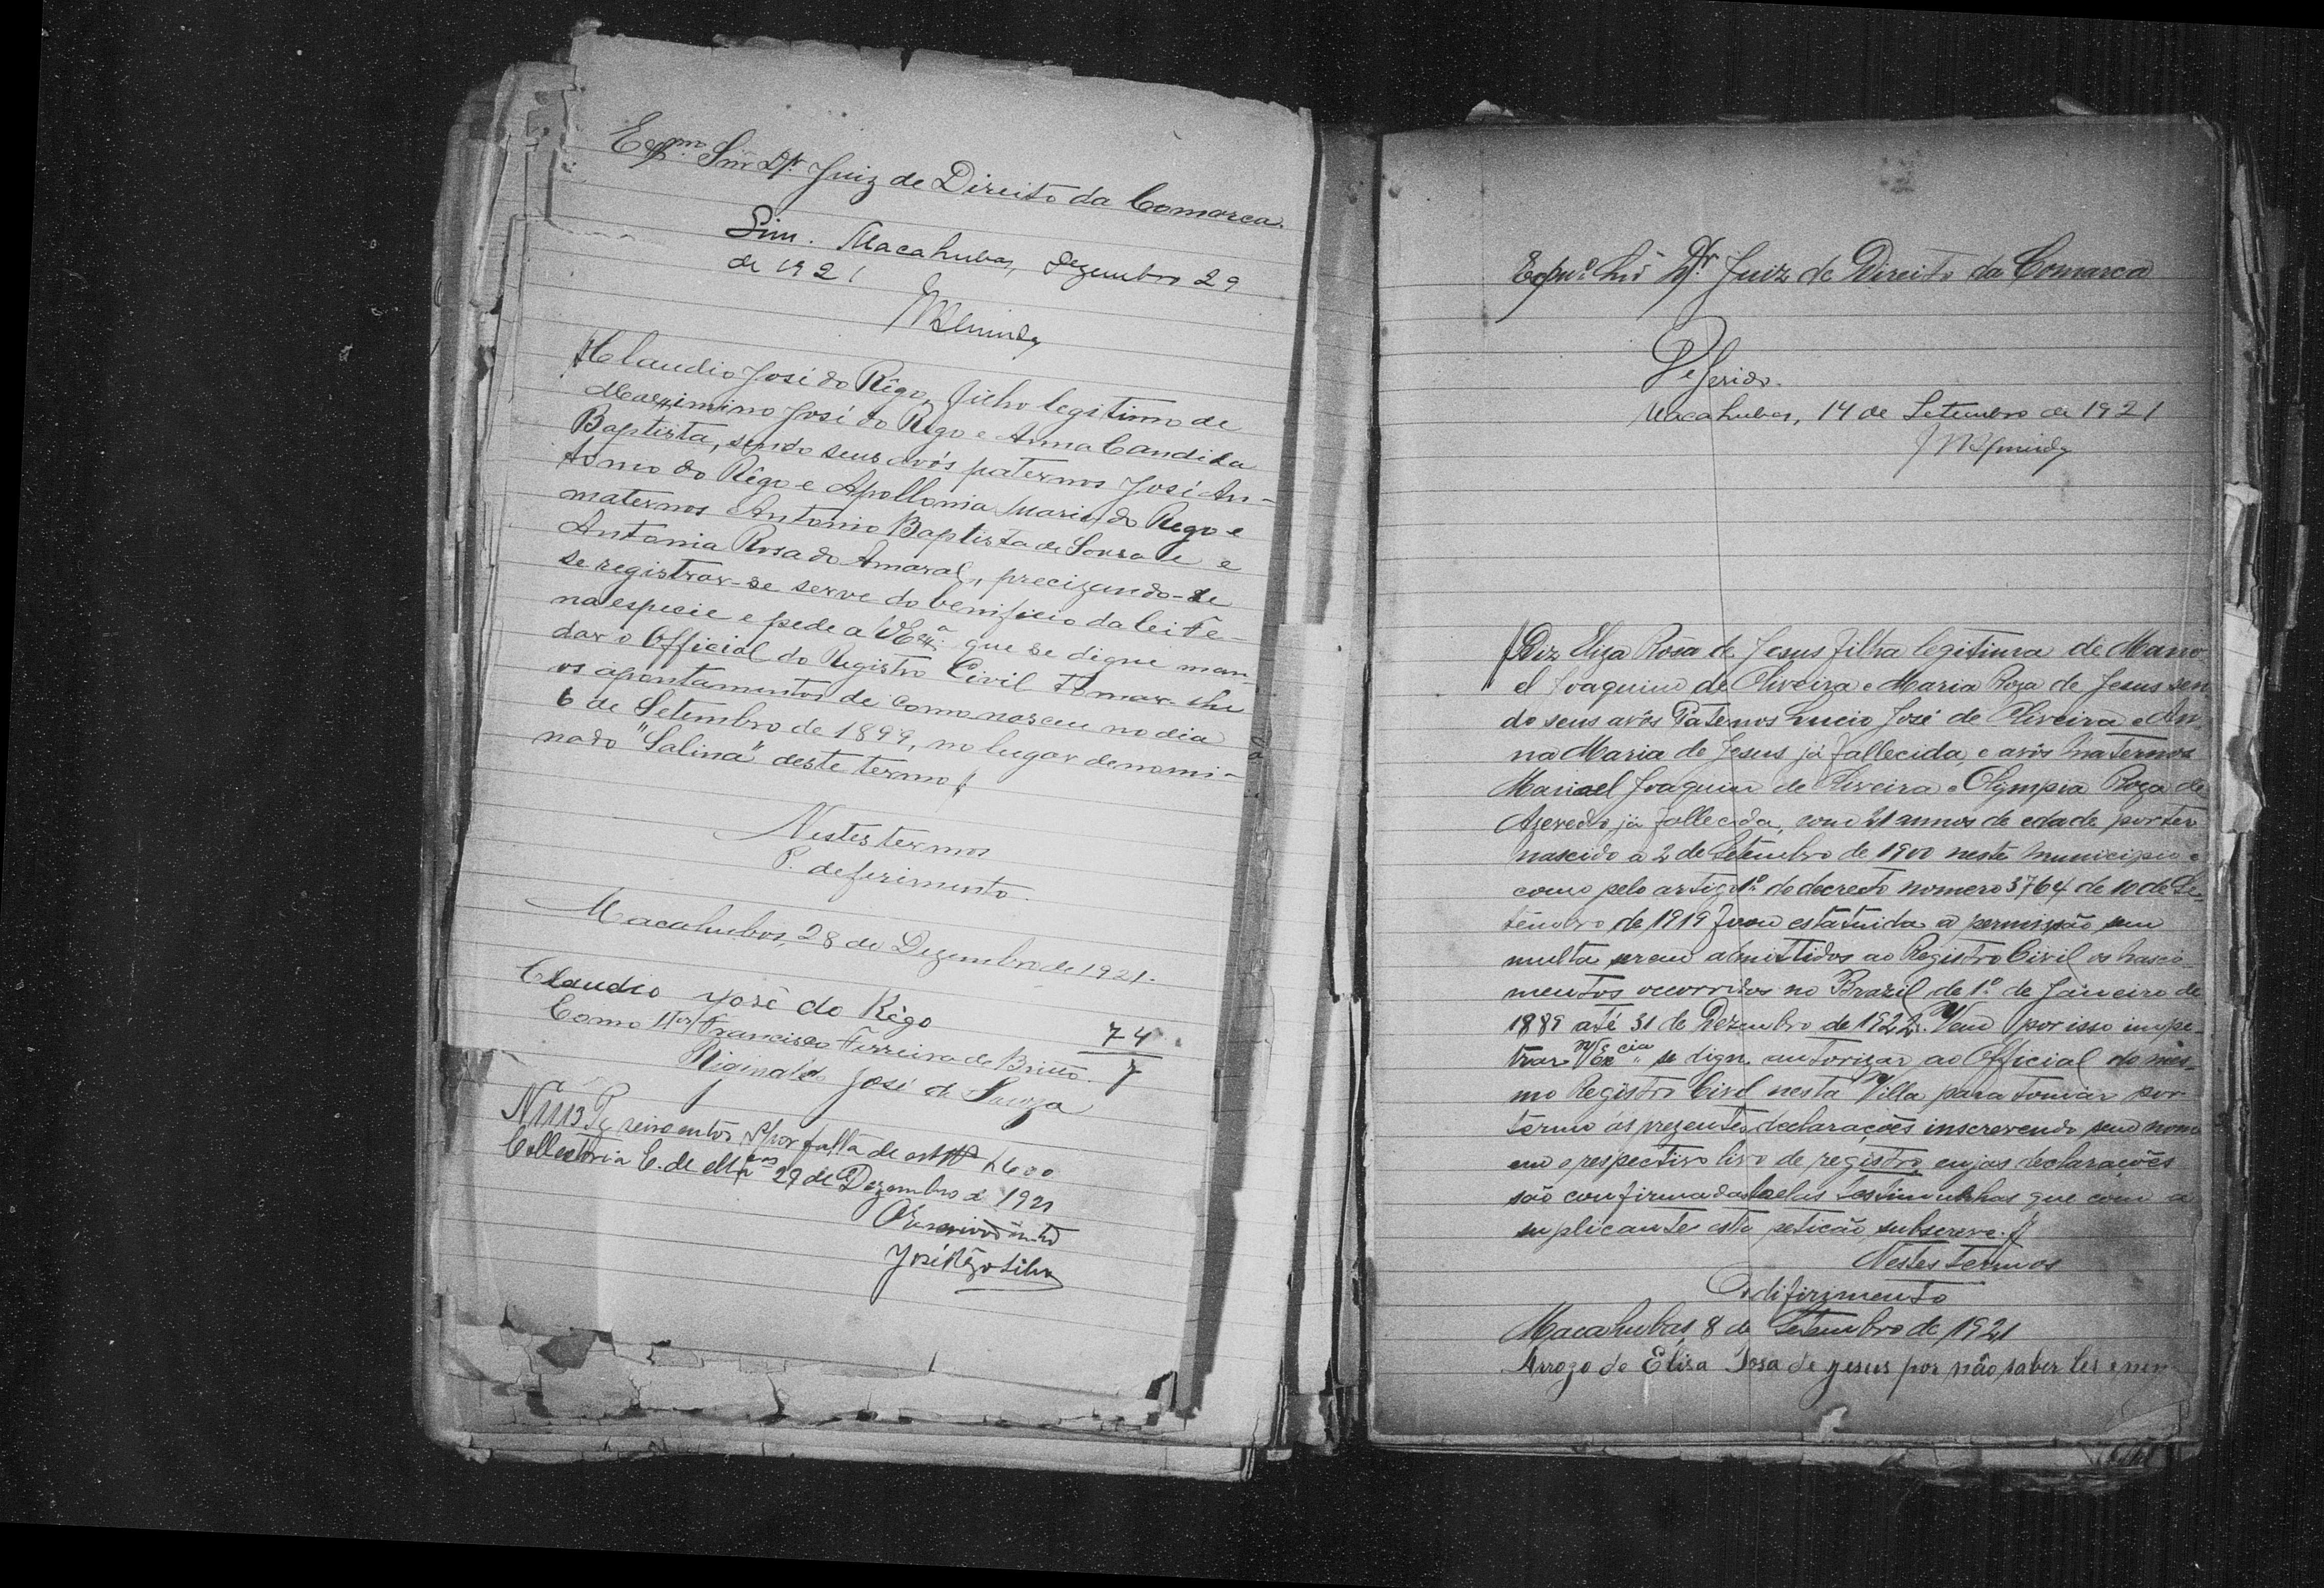 Exmo. Snr. Dr. Juiz de Direito da Comarca.
Sim. Macahubas, Dezembro 29
de 1921
Claudio José do Rêgo, filho legitimo de
Maximino José do Rêgo e Anna Candida
Baptista, sendo seus avós paternos José An-
tonio do Rêgo e Apollonia Maria do Rego e
maternos Antonio Baptista de Sousa e
Antonia Rosa do Amaral, precizando-se
se registrar-se serve do benificio da lei
na especie e pede a V Exª. que se digne man-
dar o Official do Registro Civil tomar-lhe
os apontamentos de como nasceu no dia
6 de Setembro de 1899, no lugar denomi-
nado "Salina" deste termo
Nestes termos
P. deferimento.
Macahubas, 28 de Dezembro de 1921.
Claudio José do Rêgo
Como Ter Francisco Ferreira de Britto.
74
7
Riginaldo José de Souza
N 1113 Pg seiscentos por falta de 600
Collectoria E. de 29 de Dezembro de 1921
José Rêgo Silva
Exmº. Snr Dr. Juiz de Direito da Comarca
Deferido.
Macahubas, 14 de Setembro de 1921
Diz Eliza Rosa de Jesus filha legitima de Mano-
el Joaquim de Oliveira e Maria Roza de Jesus sen
do seus avós Paternos Lucio José de Oliveira e An-
na Maria de Jesus já fallecida, e avós Maternos
Manoel Joaquim de Oliveira e Olympia Roza de
Azevedo já fallecida, com 21 annos de edade por ter
nascido a 2 de Setembro de 1900 neste Municipio e
como pelo artigo 1º do decreto nomero 3764 de 10 de Se-
tembro de 1919 ficou estatuida a permissão sem
multa serem admittidos ao Registro Civil os nasci-
mentos occorridos no Brazil de 1º. de Janeiro de
1889 até 31 de Dezembro de 1922. Vem por isso impe-
trar V Excia se digne autorizar ao Official do mes-
mo Registro Civil nesta Villa para tomar por
termo as prezentes declarações inscrevendo seu nome
em o respectivo livro de registro, cujas declarações
são confirmadas pelas testimunhas que com a
suplicante esta petição subscreve.
Nestes termos
P. difirimento
Macahubas, 8 de Setembro de 1921
Arrogo de Elisa Rosa de Jesus por não saber ler e nem